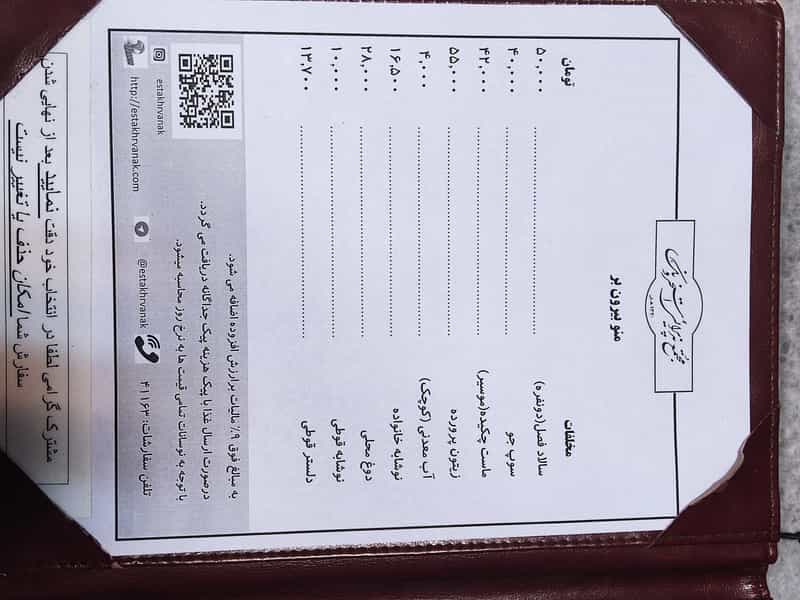 منو بیرون بر
مخلفات تومان
سالاد فصل(دونفره) ۵۰,۰۰۰
سوپ جو ۴۰,۰۰۰
ماست چکیده(موسیر) ۴۲,۰۰۰
زیتون پرورده ۵۵,۰۰۰
آب معدنی (کوچک) ۴,۰۰۰
نوشابه خانواده ۱۶,۵۰۰
دوغ محلی ۲۸,۰۰۰
نوشابه قوطی ۱۰,۰۰۰
دلستر قوطی ۱۳,۷۰۰
به مبالغ فوق ۹٪ مالیات برارزش افزوده اضافه می شود.
درصورت ارسال غذا با پیک هزینه پیک جداگانه دریافت می گردد.
با توجه به نوسانات تمامی قیمت ها به نرخ روز محاسبه میشود.
estakhrvanak
http://estakhrvanak.com
@estakhrvanak
تلفن سفارشات: ۴۱۱۶۳
مشترک گرامی لطفا در انتخاب خود دقت نمایید بعد از نهایی شدن
سفارش شما امکان حذف یا تغییر نیست